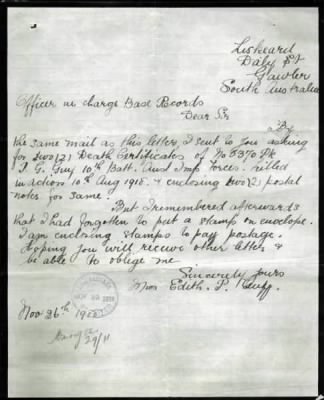 Liskeard
Daly St
Gawler
South Australia
Officer in charge Base Records
Dear Sir
By
the same mail as this letter, I sent to you asking
for two (2) Death Certificates of No 5370 Pte
J. G. Guy 10th Batt. Aust Imp Forces. killed
in action 10th Aug 1918. & enclosing two (2) postal
notes for same.
But I remembered afterwards
that I had forgotten to put a stamp on envelope.
I am enclosing stamps to pay postage.
Hoping you will receive other letter &
be able to oblige me
Sincerely yours
Miss Edith. P.
Nov 26th
29/11